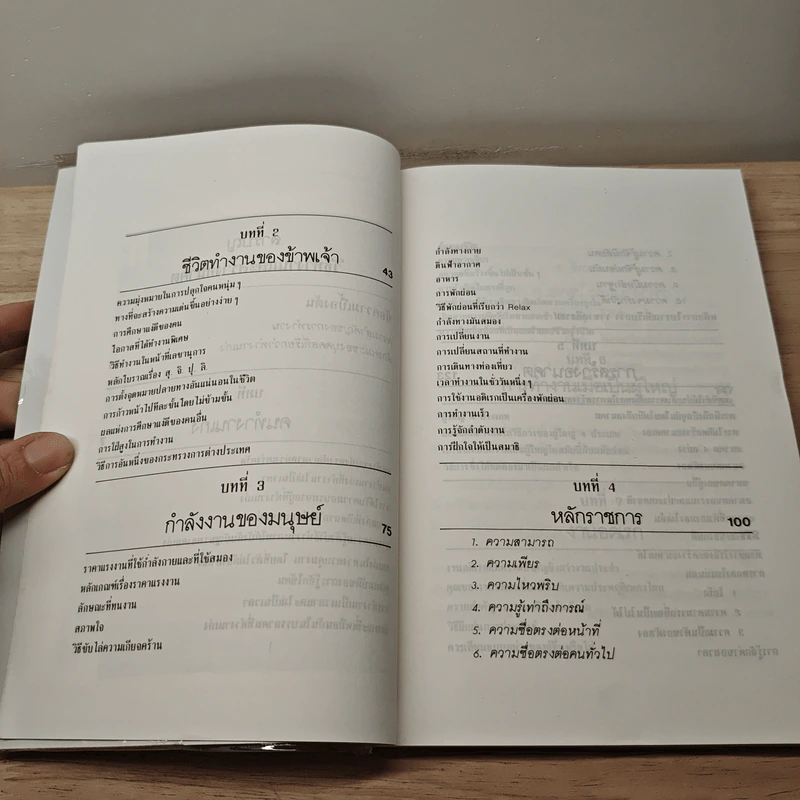 บทที่ 2
ชีวิตทำงานของข้าพเจ้า 43
ความมุ่งหมายในการปลุกใจคนหนุ่ม ๆ
ทางที่จะสร้างความเด่นขึ้นอย่างง่าย ๆ
การศึกษาแง่ดีของคน
โอกาสที่ได้ทำงานพิเศษ
วิธีทำงานในหน้าที่เลขานุการ
หลักโบราณเรื่อง สุ. จิ. ปุ. ลิ.
การตั้งจุดหมายปลายทางอันแน่นอนในชีวิต
การก้าวหน้าไปทีละขั้นโดยไม่ข้ามขั้น
ยอดแห่งการศึกษาแง่ดีของคนอื่น
การใฝ่สูงในการทำงาน
วิธีการอันหนึ่งของกระทรวงการต่างประเทศ
บทที่ 3
กำลังงานของมนุษย์ 75
ราคาแรงงานที่ใช้กำลังกายและที่ใช้สมอง
หลักเกณฑ์เรื่องราคาแรงงาน
ลักษณะที่ทนงาน
สภาพใจ
วิธีขับไล่ความเกียจคร้าน
กำลังทางกาย
ดินฟ้าอากาศ
อาหาร
การพักผ่อน
วิธีพักผ่อนที่เรียกว่า Relax
กำลังทางมันสมอง
การเปลี่ยนงาน
การเปลี่ยนสถานที่ทำงาน
การเดินทางท่องเที่ยว
เวลาทำงานในชั่ววันหนึ่ง ๆ
การใช้งานอดิเรกเป็นเครื่องพักผ่อน
การทำงานเร็ว
การรู้จักลำดับงาน
การฝึกใจให้เป็นสมาธิ
บทที่ 4
หลักราชการ 100
1. ความสามารถ
2. ความเพียร
3. ความไหวพริบ
4. ความรู้เท่าถึงการณ์
5. ความซื่อตรงต่อหน้าที่
6. ความซื่อตรงต่อคนทั่วไป